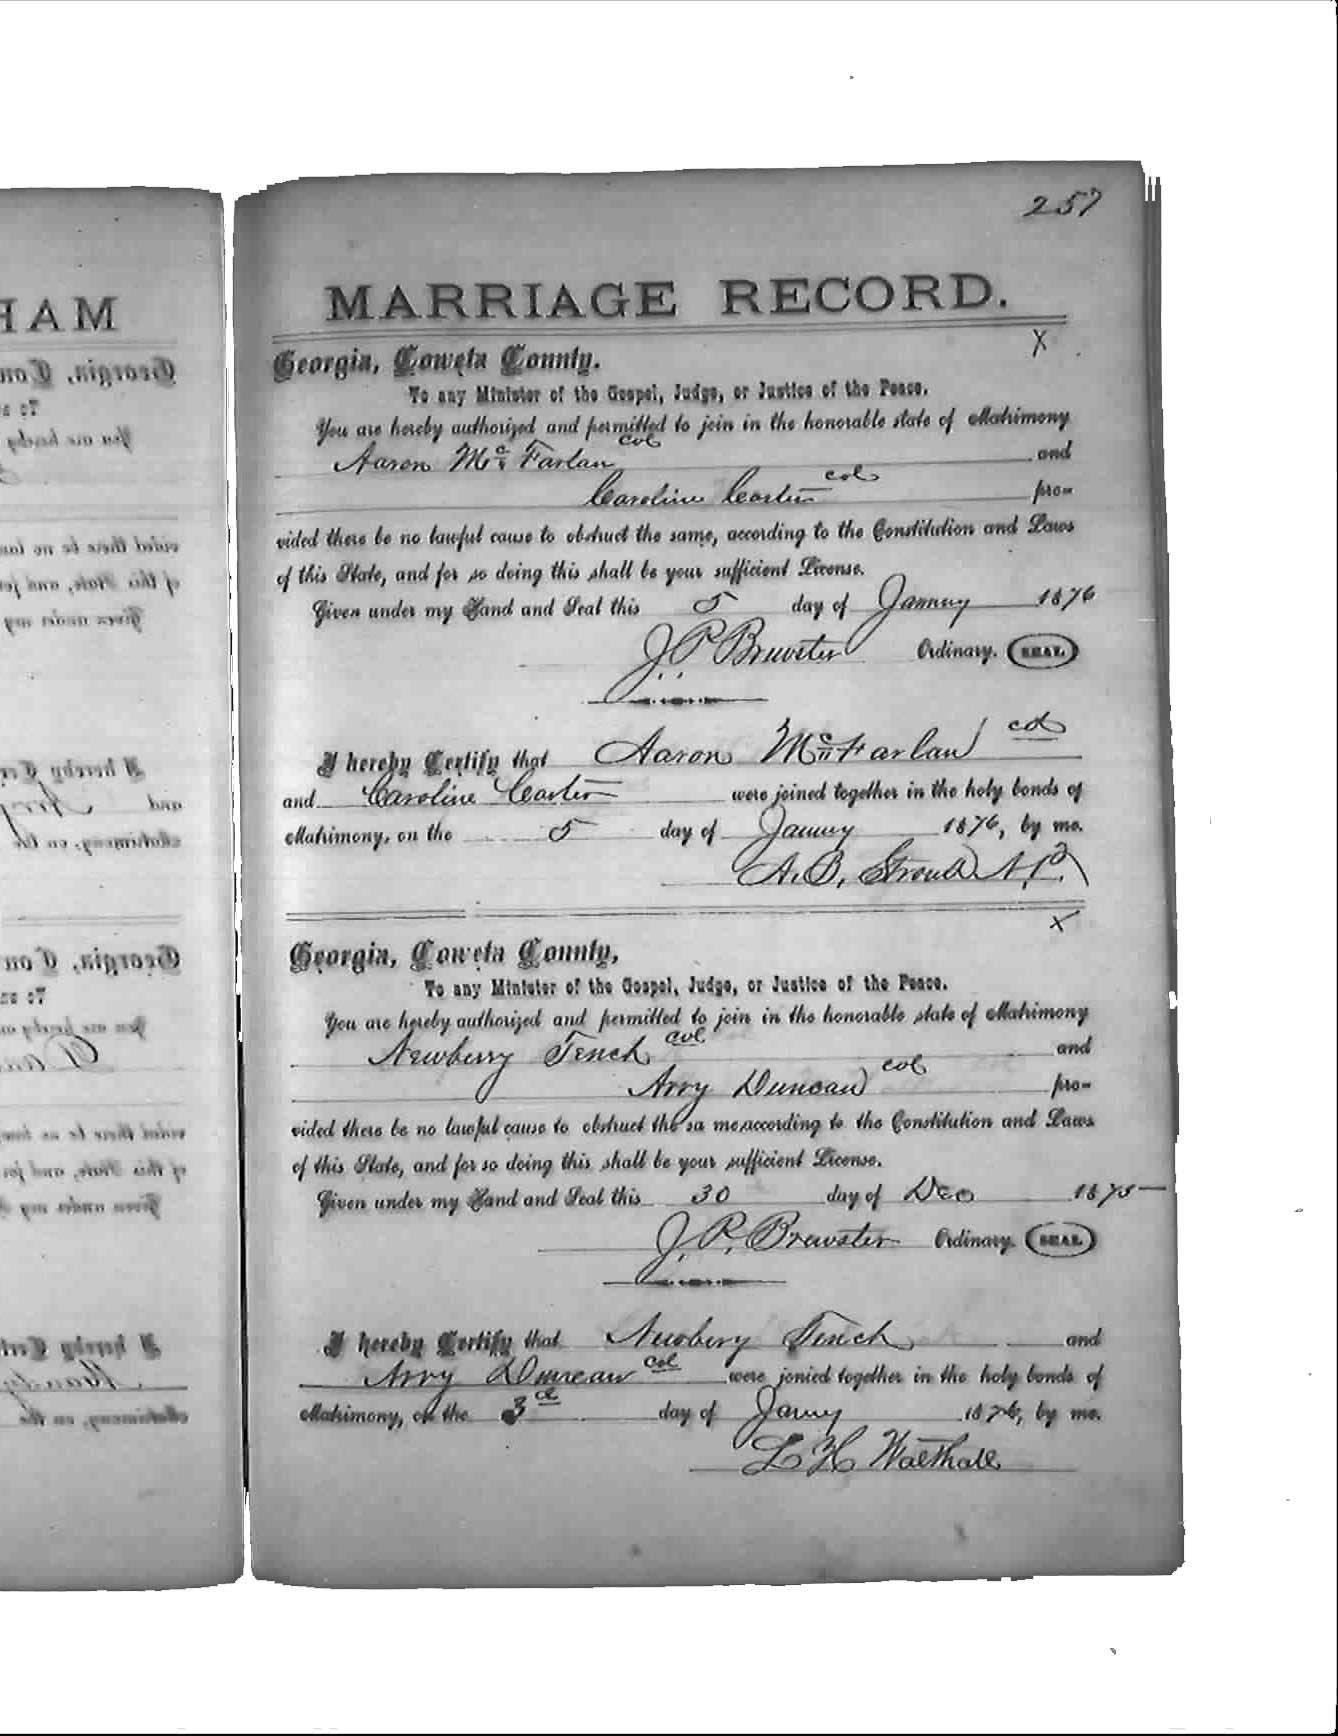 257
MARRIAGE RECORD.
X
Georgia, Coweta County.
To any Minister of the Gospel, Judge, or Justice of the Peace.
You are hereby authorized and permitted to join in the honorable state of Matrimony
Aaron McFarlan col and
Caroline Carter col pro-
vided there be no lawful cause to obstruct the same, according to the Constitution and Laws
of this State, and for so doing this shall be your sufficient License.
Given under my Hand and Seal this 5 day of Januy 1876
J P Brewster Ordinary. SEAL
I hereby Certify that Aaron McFarlan col
and Caroline Carter were joined together in the holy bonds of
Matrimony, on the 5 day of Januy 1876, by me.
A. B. Stroud N.P.
X
Georgia, Coweta County,
To any Minister of the Gospel, Judge, or Justice of the Peace.
You are hereby authorized and permitted to join in the honorable state of Matrimony
Newberry Tench col and
Arry Duncan col pro-
vided there be no lawful cause to obstruct the sa me,according to the Constitution and Laws
of this State, and for so doing this shall be your sufficient License.
Given under my Hand and Seal this 30 day of Dec 1875
J. P. Brewster Ordinary. SEAL
I hereby Certify that Newbery Tench and
Arry Duncan col were jonied together in the holy bonds of
Matrimony, on the 3d day of Januy 1876, by me.
L H Walthall